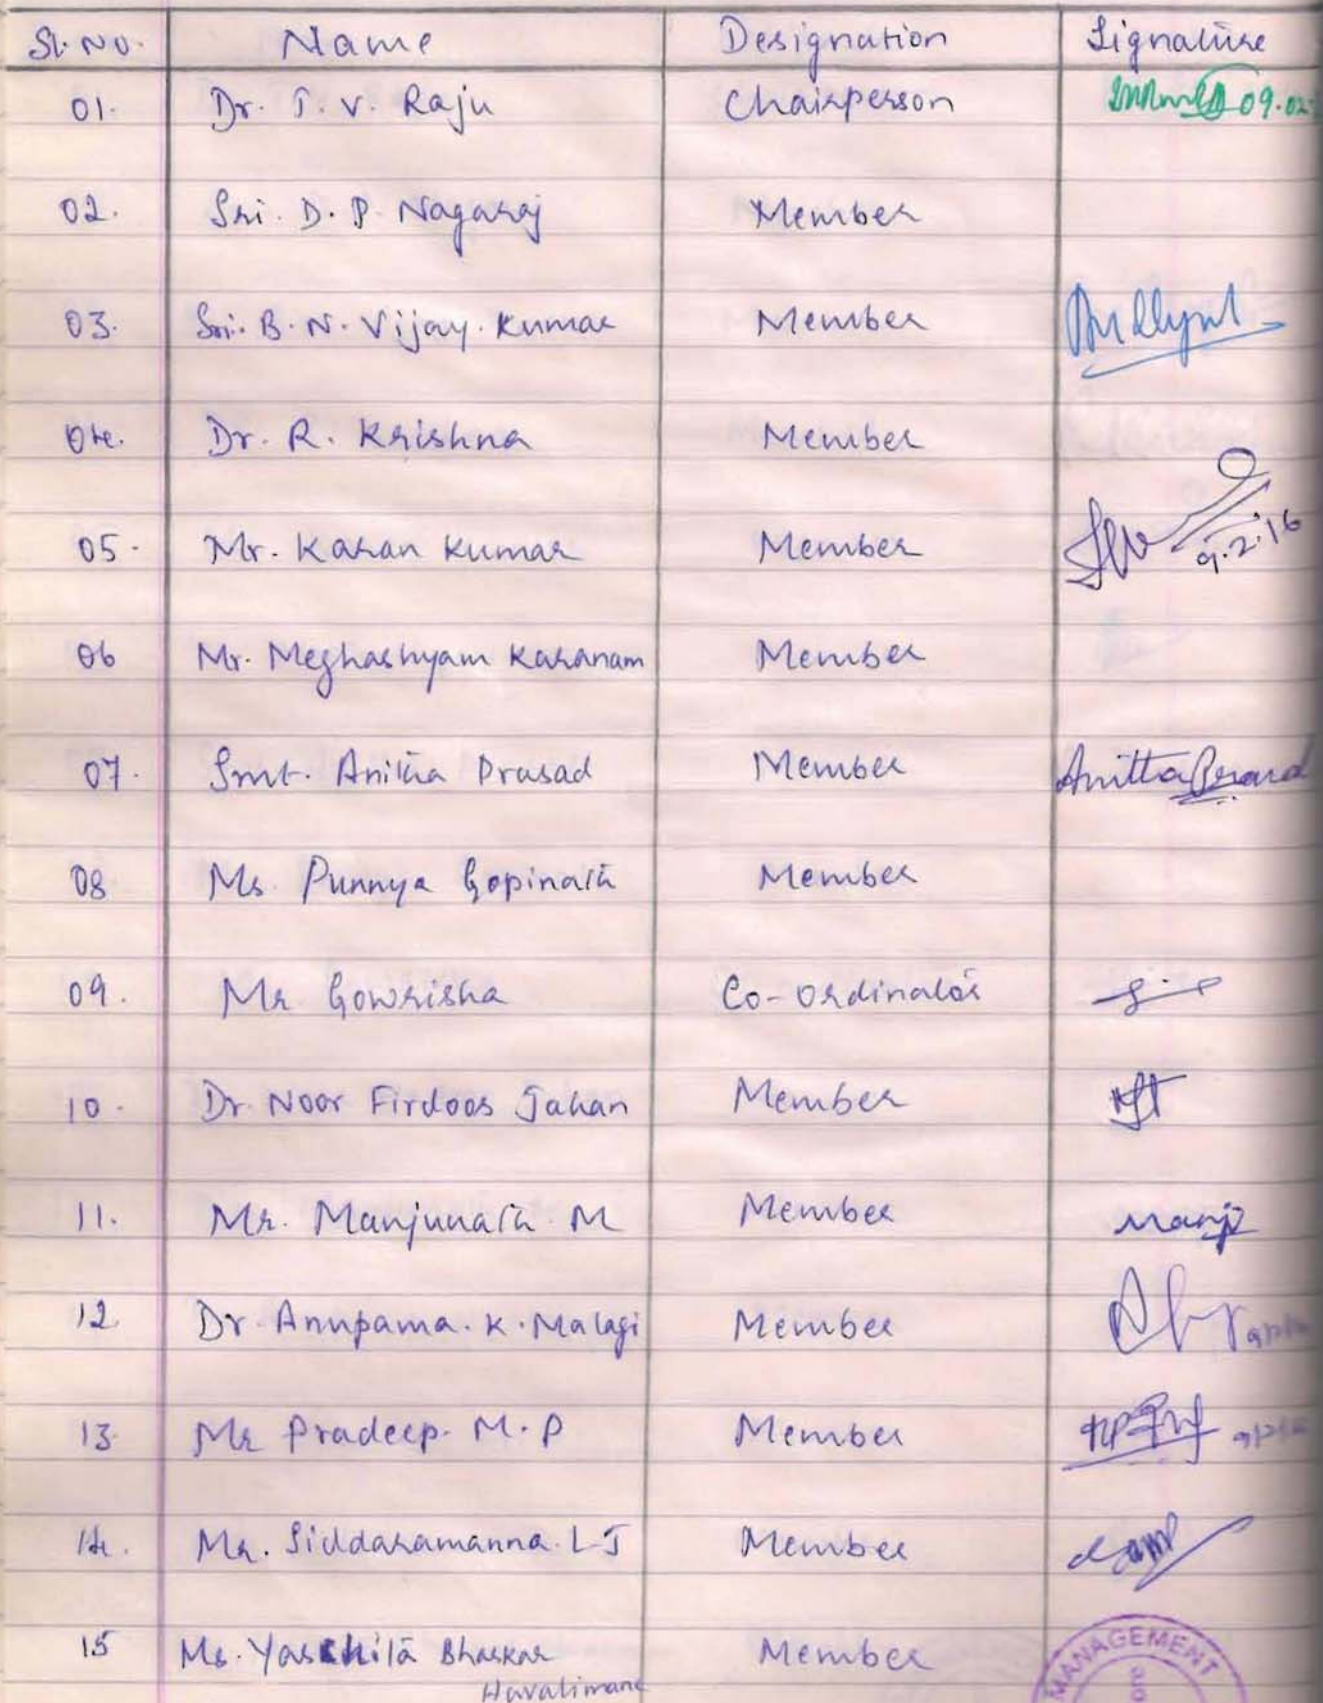 Sl. No. Name Designation Signature
01. Dr. T. V. Raju Chairperson 09.02
02. Sri. D. P. Nagaraj Member
03. Sri. B. N. Vijay. Kumar Member
04. Dr. R. Krishna Member
05. Mr. Karan Kumar Member 9.2.16
06 Mr. Meghashyam Karanam Member
07. Smt. Anitha Prasad Member Anitta Prasad
08 Ms. Punnya Gopinath Member
09. Mr Gowrisha Co-ordinator
10. Dr. Noor Firdoos Jahan Member
11. Mr. Manjunath M Member Manj
12 Dr. Anupama. K. Malagi Member
13. Mr Pradeep. M. P Member
14. Mr. Siddaramanna. L J Member
15 Ms. Bhaskar Member
Havalimane
MANAGEMENT